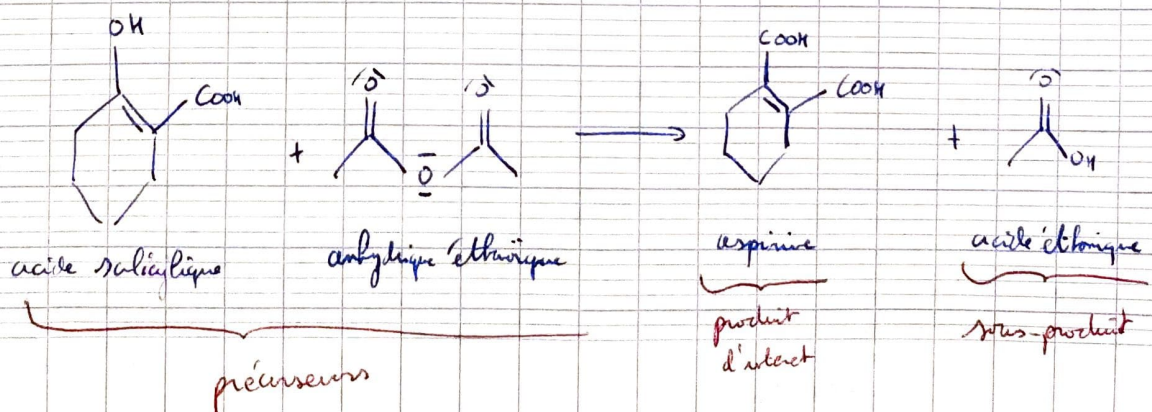 OH
COOH
+
O
O
O
COOH
COOH
+
O
OH
acide salicylique
anhydrique éthanoïque
aspirine
acide éthanoique
précurseurs
produit
d'interet
sous-produit